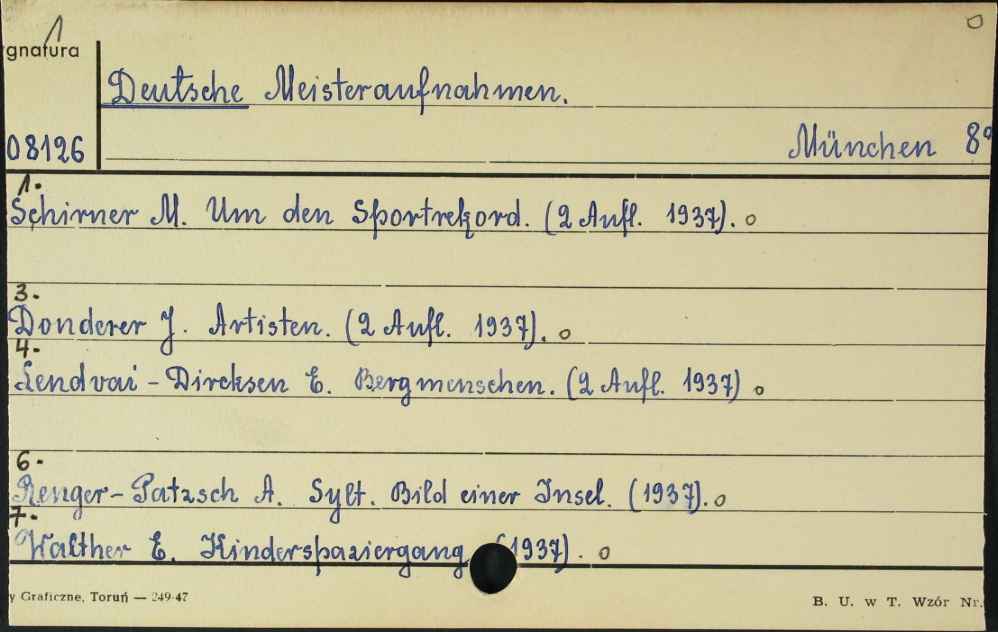 1
gnatura
Deutsche Meisteraufnahmen.
08126
München 8°
1.
Schirner M. Um den Sportrekord. (2 Aufl. 1937). o
3.
Donderer J. Artisten. (2 Aufl. 1937). o
4.
Lendvai-Dircksen E. Bergmenschen. (2 Aufl. 1937) o
6.
Renger-Patzsch A. Sylt. Bild einer Insel. (1937). o
7.
Walther E. Kinderspaziergang (1937). o
y Graficzne, Toruń — 249-47
B. U. w T. Wzór Nr.